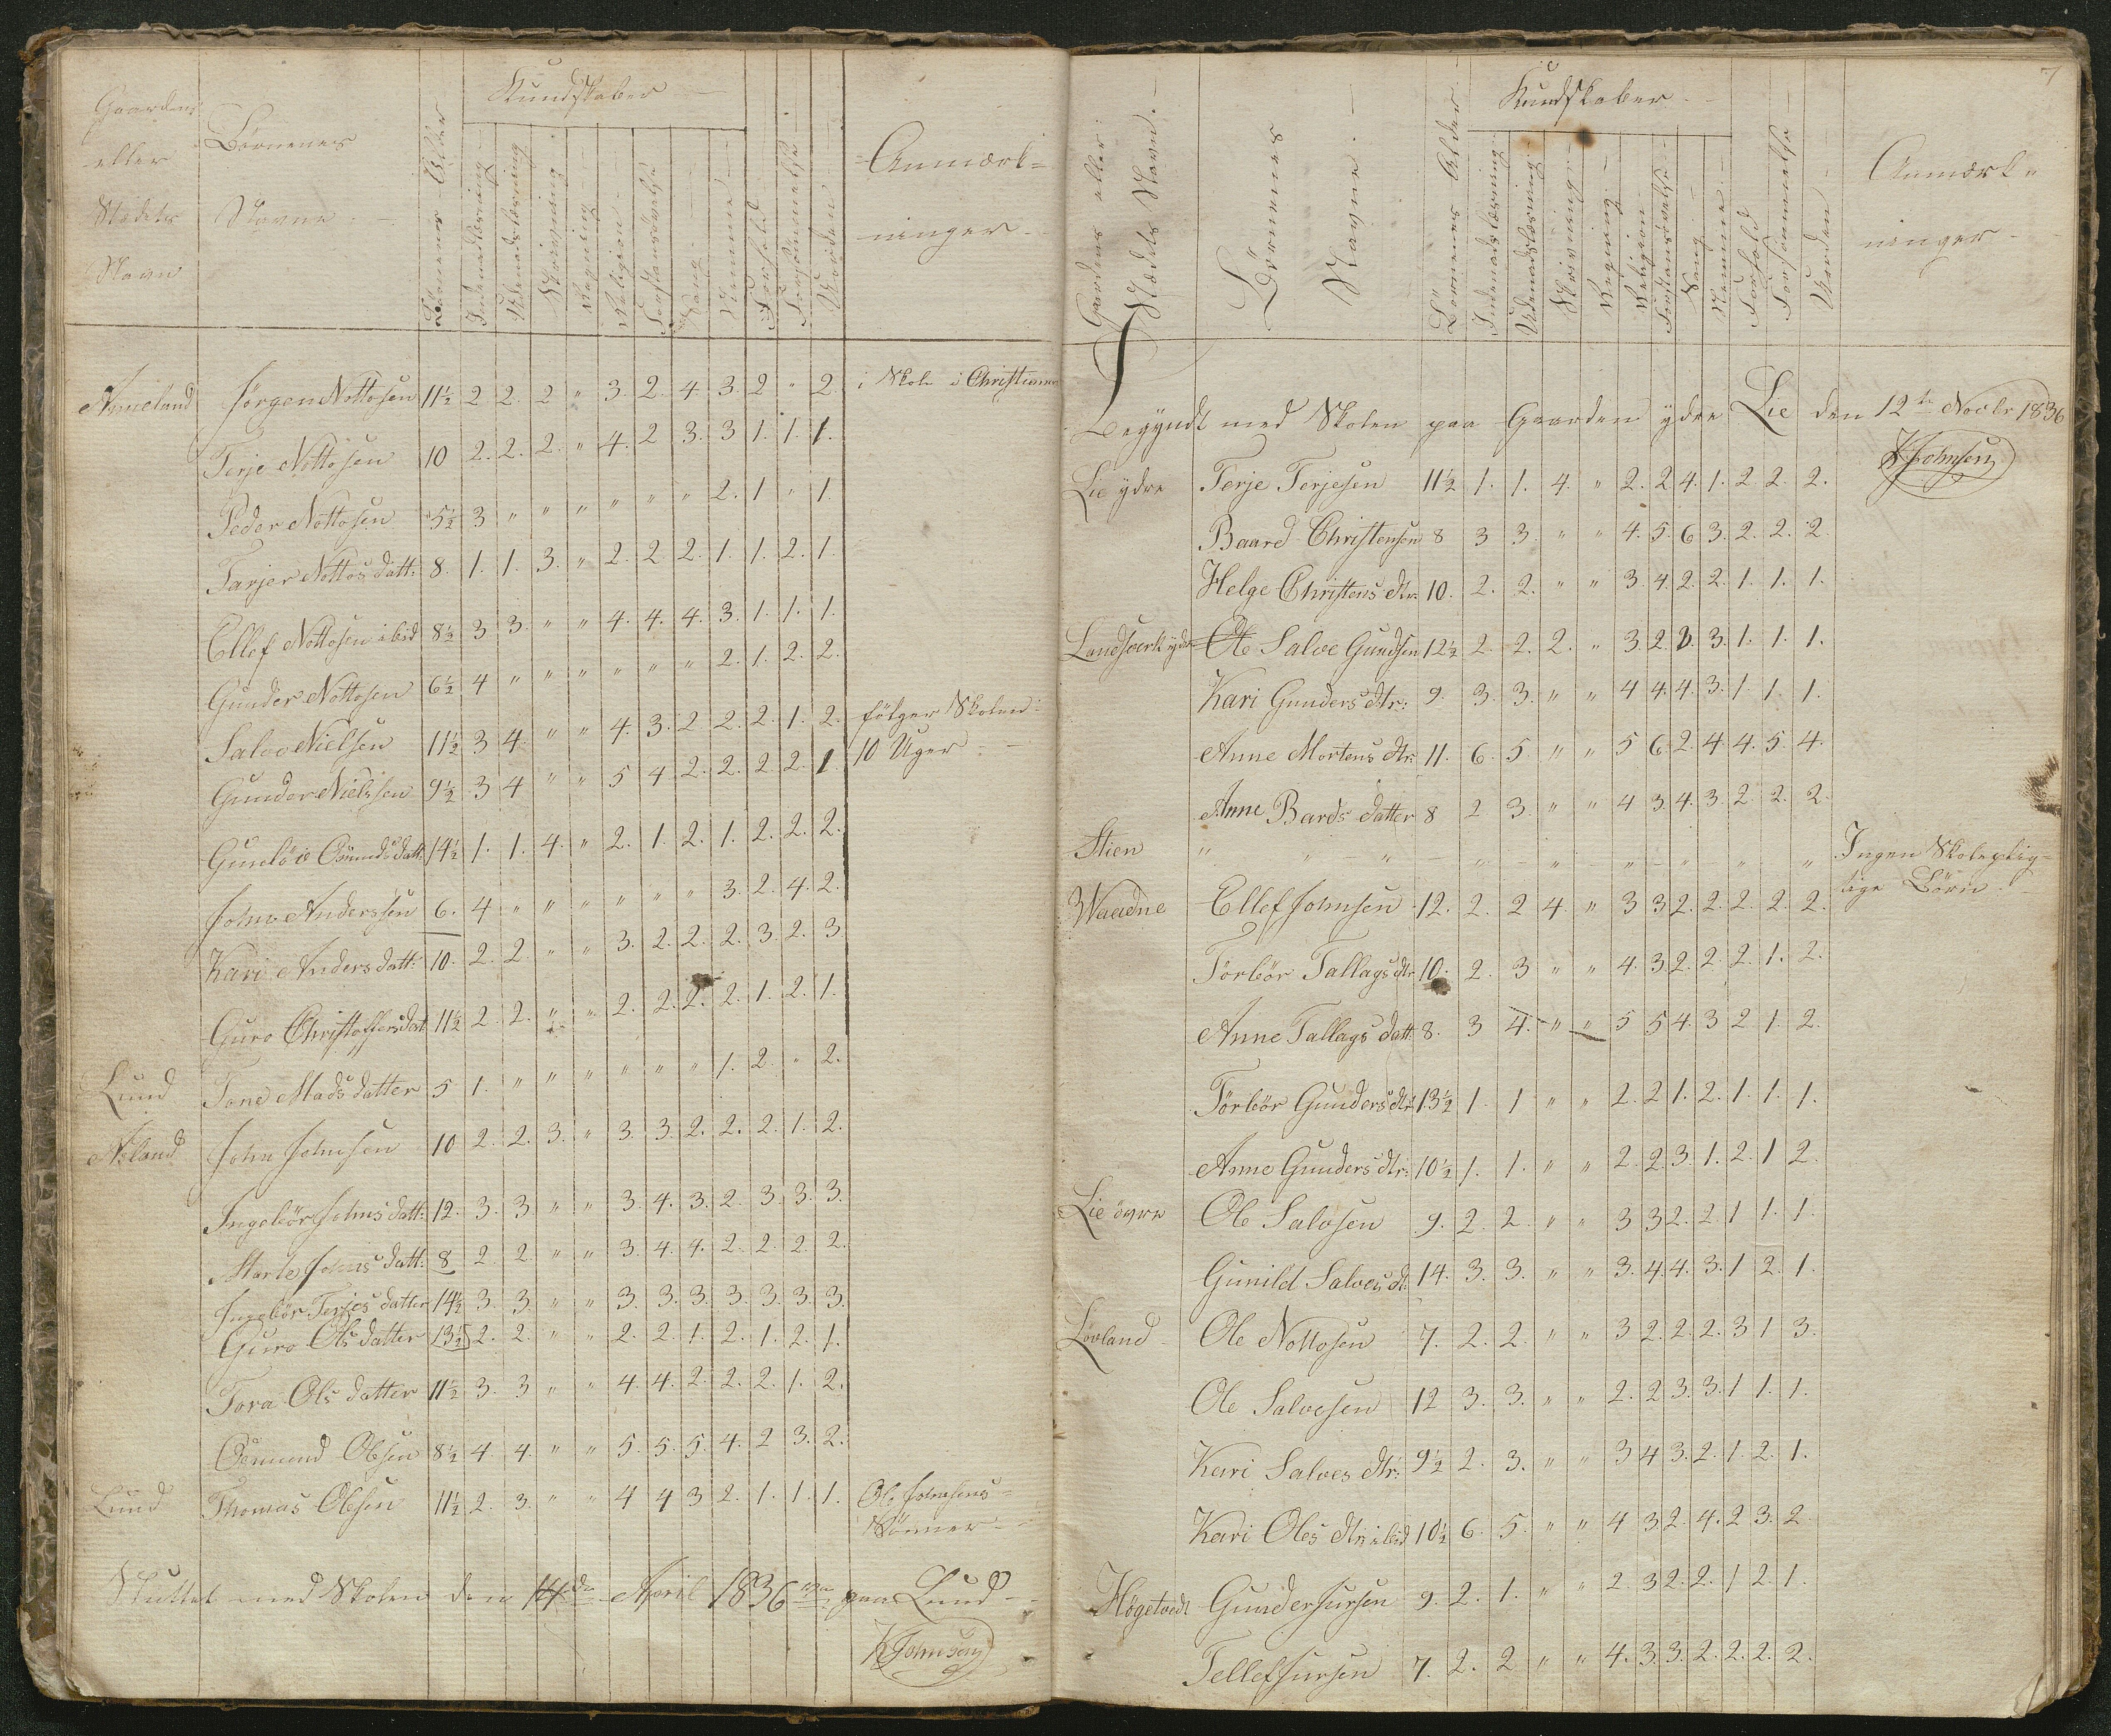 Gaardens
eller
Stædets
Navn
Börnenes
Navne
Börnenes Alder
Kundskaber
Indenadslæsning
Udenadslæsning
Skrivning
Regning
Religion
Forstandsövelse
Sang
Nemme
Forhold
Forsömmelse
Orden
Anmærk=
ninger
Jörgen Nottosen 11½ 2 2. 2 " 3. 2. 4 3. 2 " 2. i Skole i Christians
Terje Nottosen 10 2. 2. 2. " 4. 2 3. 3 1. 1. 1.
Peder Nottosen 5½ 3 " " " " " " 2. 1 " 1.
Tarjer Nottos datt: 8. 1. 1. 3. " 2. 2 2. 1. 1. 2. 1.
Ellef Nottosen ibid 8½ 3 3. " " 4. 4. 4. 3. 1. 1. 1.
Gunder Nottosen 6½ 4 " " " " " " 2. 1. 2. 2.
Salve Nielsen 11½ 3 4. " " 4. 3. 2 2. 2. 1. 2. fölger Skolen
Gunder Nielssen 9½ 3 4 " " 5 4 2. 2. 2. 2. 1. 10 Uger
Gunelöv Osmunds datt: 14½ 1. 1. 4. " 2. 1. 2. 1. 2. 2. 2.
John Anderssen 6. 4 " " " " " " 3. 2. 4. 2.
Kari Anders datt: 10. 2. 2. " " 3. 2. 2. 2. 3. 2. 3
Guro Christoffersdat 11½ 2 2. " " 2. 2. 2. 2. 1. 2. 1.
Lund Tone Mads datter 5 1. " " " " " " 1. 2. " 2.
Aasland John Johnsen 10 2. 2. 3. " 3. 3. 2. 2. 2. 1. 2.
Ingebör Johns datt: 12. 3. 3. " " 3. 4. 3. 2. 3. 3. 3.
Marte Johns datt: 8 2 2. " " 3. 4. 4. 2. 2. 2. 2.
Ingebör Terjes datter 14½ 3. 3. " " 3. 3. 3. 3. 3. 3. 3.
Guro Ols datter 13½ 2. 2. " " 2. 2. 1. 2. 1. 2. 1.
Tora Ols datter 11½ 3. 3 " " 4. 4. 2. 2. 2. 1. 2.
Osmund Olsen 8½ 4. 4. " " 5. 5. 5. 4. 2 3. 2.
Lund Thomas Olsen 11½ 2. 3. " " 4 4 3 2. 1. 1. 1. Ole Johnsens
Sönner
Sluttet med Skolen den 14de April 1836 paa Lund
K Johnsen
7
Gaardens eller
Stædets Navn
Börnenes
Navne
Börnenes Alder
Kundskaber
Indenadslæsning
Udenadslæsning
Skrivning
Regning
Religion
Forstandsövelse
Sang
Nemme
Forhold
Forsömmelse
Orden
Anmærk=
ninger
Begyndt med Skolen paa Gaarden ydre Lie den 12te Novbr 1836
K Johnsen
Lie ydre Terje Terjesen 11½ 1. 1. 4. " 2. 2. 4. 1. 2 2. 2.
Baard Christensen 8 3 3. " " 4. 5. 6 3. 2. 2. 2.
Helge Christens dtr: 10. 2. 2. " " 3. 4. 2. 2. 1. 1. 1.
Landsverk ydre Ole Salve Gundsen 12½ 2 2. 2. " 3. 2. 3. 3. 1. 1. 1.
Kari Gunders dtr: 9. 3. 3. " " 4 4. 4. 3. 1 1. 1.
Anne Mortens dtr: 11. 6. 5. " " 5 6. 2. 4 4. 5. 4.
Anne Bards datter 8 2 3. " " 4 3. 4. 3. 2. 2. 2.
Stien " " " " " " " " " Ingen Skolepligtige
Waadne Ellef Johnsen 12. 2. 2 4. " 3 3 2. 2. 2. 2. 2. Börn.
Törbör Tallags dtr 10. 2. 3 " " 4. 3. 2. 2. 2. 1. 2.
Anne Tallags datt 8. 3 4. " " 5 5 4. 3 2 1. 2.
Törbör Gunders dtr: 13½ 1. 1 " " 2. 2 1. 2. 1. 1. 1.
Anne Gunders dtr: 10½ 1. 1. " " 2. 2. 3. 1. 2. 1 2.
Lie övre Ole Salvesen 9. 2. 2. " " 3 3 2. 2 1 1. 1.
Gunild Salves dt: 14. 3. 3. " " 3. 4. 4. 3. 1 2. 1.
Lövland Ole Nottosen 7. 2. 2. " " 3 2. 2. 2. 3 1 3.
Ole Salvesen 12 3. 3. " " 2. 2 3. 3. 1 1. 1.
Kari Salves dtr: 9½ 2. 3. " " 3 4 3. 2. 1. 2. 1.
Kari Oles dtr: ibid 10½ 6. 5. " " 4 3. 2. 4. 2 3. 2
Högetvedt Gunder Jursen 9. 2. 1. " " 2. 3 2. 2. 1 2. 1.
Tellef Jursen 7. 2. 2 " " 4. 3. 3. 2. 2. 2. 2.